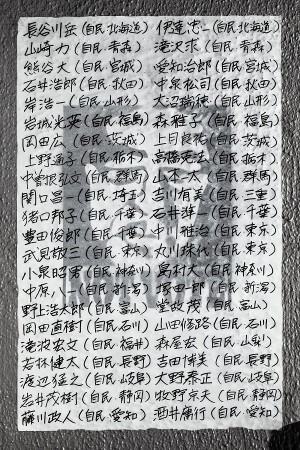 長谷川岳(自民,北海道) 伊達忠一(自民,北海道)
山崎力(自民,青森) 滝沢求(自民,青森)
熊谷大(自民,宮城) 愛知治郎(自民,宮城)
石井浩郎(自民,秋田) 中泉松司(自民,秋田)
岸浩一(自民,山形) 大沼瑞穂(自民,山形)
岩城光英(自民,福島) 森雅子(自民,福島)
岡田広(自民,茨城) 上月良祐(自民,茨城)
上野通子(自民,栃木) 高橋克法(自民,栃木)
中曽根弘文(自民,群馬) 山本一太(自民,群馬)
関口昌一(自民,埼玉) 吉川有美(自民,三重)
猪口邦子(自民,千葉) 石井準一(自民,千葉)
豊田俊郎(自民,千葉) 中川雅治(自民,東京)
武見敬三(自民,東京) 丸川珠代(自民,東京)
小泉昭男(自民,神奈川) 島村大(自民,神奈川)
中原八一(自民,新潟) 塚田一郎(自民,新潟)
野上浩太郎(自民,富山) 堂故茂(自民,富山)
岡田直樹(自民,石川) 山田修路(自民,石川)
滝波宏文(自民,福井) 森屋宏(自民,山梨)
若林健太(自民,長野) 吉田博美(自民,長野)
渡辺猛之(自民,岐阜) 大野泰正(自民,岐阜)
岩井茂樹(自民,静岡) 牧野京夫(自民,静岡)
藤川政人(自民,愛知) 酒井庸行(自民,愛知)